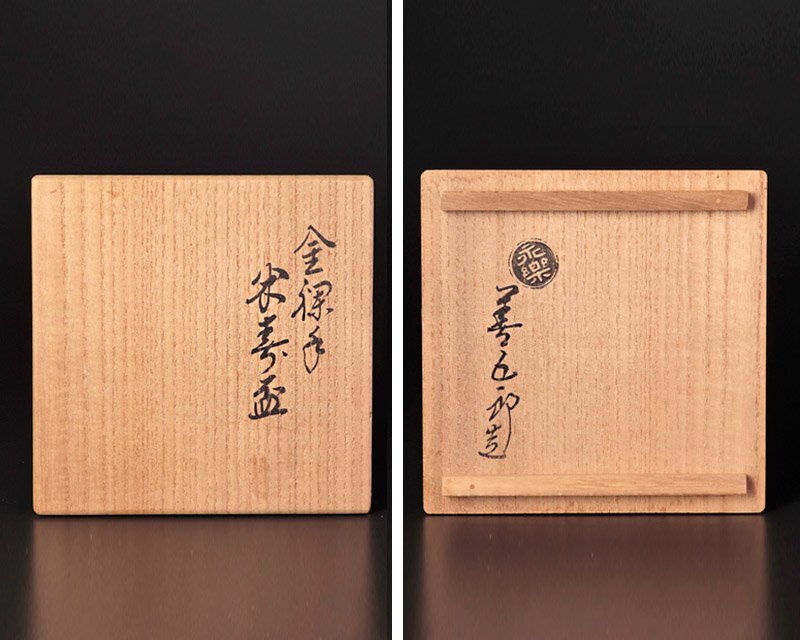 金襴手
米寿盃
永樂
善五郎造